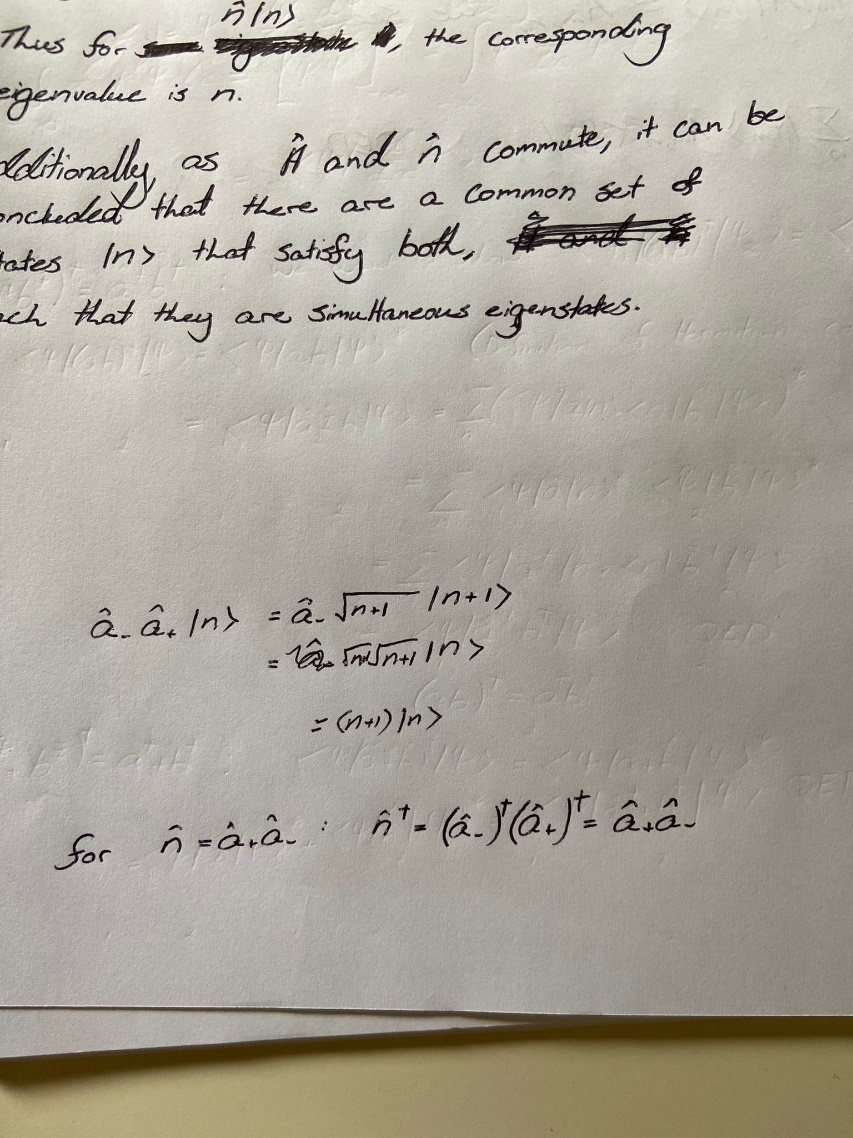 n̂|n⟩
Thus for , the corresponding
eigenvalue is n.
dditionally, as Ĥ and n̂ commute, it can be
oncluded that there are a common set of
tates |n⟩ that satisfy both,
ch that they are simultaneous eigenstates.
â₋ â₊ |n⟩ = â₋ √n+1 |n+1⟩
= √n+1 √n+1 |n⟩
= (n+1) |n⟩
for n̂ = â₊â₋ : n̂† = (â₋)†(â₊)† = â₊â₋